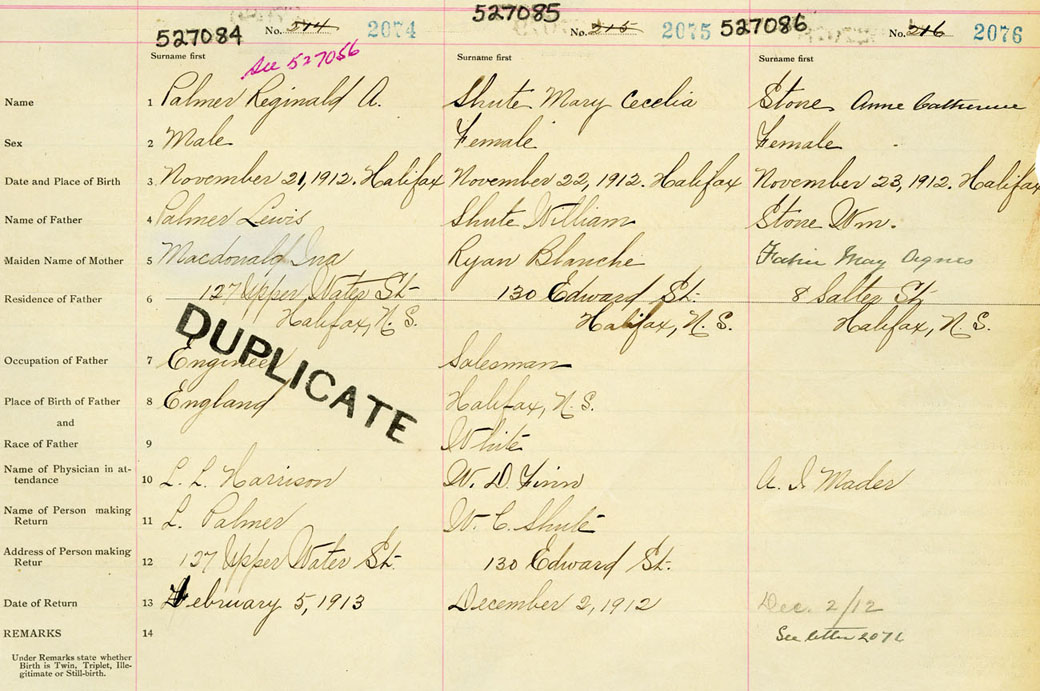 527084 No. 514 2074
527085 No. 215 2075
527086 No. 216 2076
See 527056
Surname first Surname first Surname first
Name 1 Palmer Reginald A. Shute Mary Cecelia Stone Anne Catherine
Sex 2 Male Female Female
Date and Place of Birth 3 November 21, 1912. Halifax November 22, 1912. Halifax November 23, 1912. Halifax
Name of Father 4 Palmer Lewis Shute William Stone Wm.
Maiden Name of Mother 5 Macdonald Ina Ryan Blanche May Agnes
Residence of Father 6 127 Upper Water St. 130 Edward St. 8 Salter St.
Halifax, N. S. Halifax, N. S. Halifax, N. S.
DUPLICATE
Occupation of Father 7 Engineer Salesman
Place of Birth of Father 8 England Halifax, N. S.
and
Race of Father 9 White
Name of Physician in at-
tendance 10 L. L. Harrison W. D. Finn A. I. Mader
Name of Person making
Return 11 L. Palmer W. C. Shute
Address of Person making
Retur 12 127 Upper Water St. 130 Edward St.
Date of Return 13 February 5, 1913 December 2, 1912 Dec. 2/12
REMARKS 14 See letter
Under Remarks state whether
Birth is Twin, Triplet, Ille-
gitimate or Still-birth.